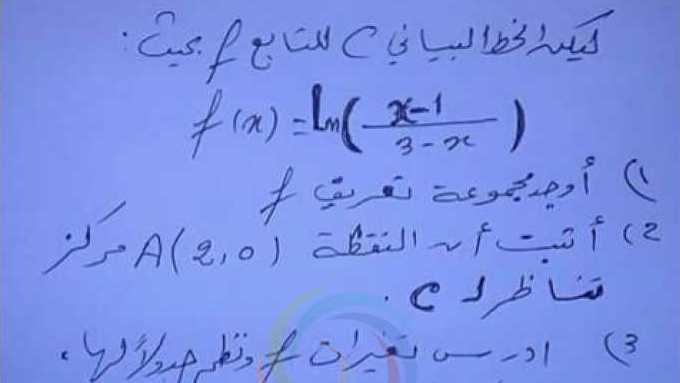 ليكن الخط البياني C للتابع f بحيث:
f(x) = ln(x-1 / 3-x)
1) أوجد مجموعة تعريف f
2) أثبت أن النقطة A(2,0) مركز
تناظر لـ C.
3) ادرس تغيرات f ونظم جدولاً لها،